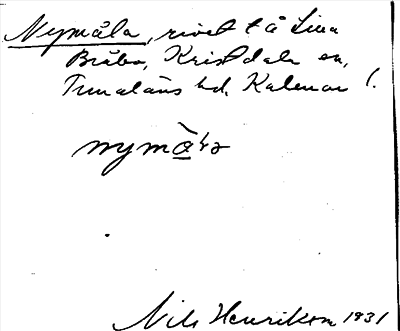 Nymåla, rivet t å Lilla
Bråbo, Kristdala sn,
Tunaläns hd, Kalmar l.
nymå
Nils Henrikson 1931